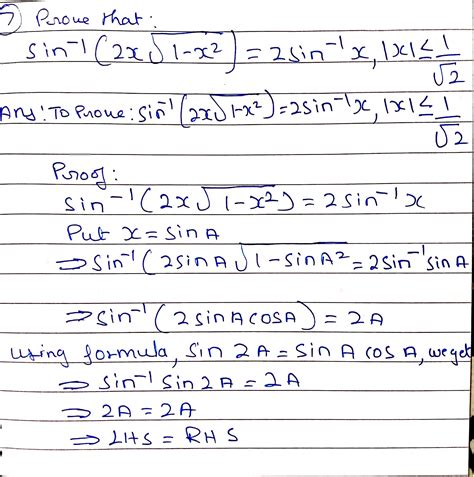 7 Prove that:
sin⁻¹(2x√1-x²) = 2sin⁻¹x, |x| ≤ 1/√2
Ans: To Prove: sin⁻¹(2x√1-x²) = 2sin⁻¹x, |x| ≤ 1/√2
Proof:
sin⁻¹(2x√1-x²) = 2sin⁻¹x
Put x = sin A
⇒ sin⁻¹(2sin A√1-sin A² = 2sin⁻¹sin A
⇒ sin⁻¹(2 sin A cos A) = 2A
using formula, sin 2A = sin A cos A, we get
⇒ sin⁻¹ sin 2A = 2A
⇒ 2A = 2A
⇒ LHS = RHS